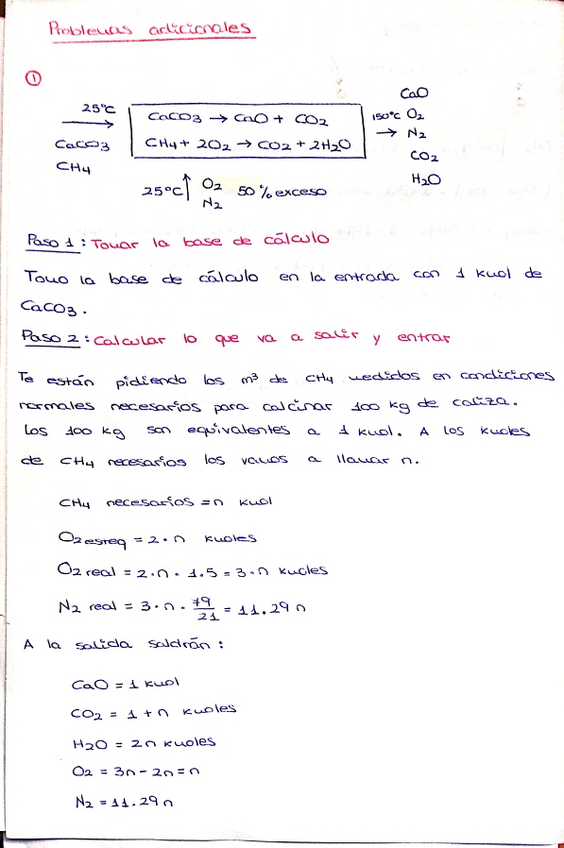 Problemas adicionales
①
25°C
CaCO3
CH4
CaCO3 → CaO + CO2
CH4 + 2O2 → CO2 + 2H2O
150°C
CaO
O2
N2
CO2
H2O
25°C O2 50% exceso
N2
Paso 1: Tomar la base de cálculo
Tomo la base de cálculo en la entrada con 1 kmol de
CaCO3.
Paso 2: Calcular lo que va a salir y entrar
Te están pidiendo los m³ de CH4 medidos en condiciones
normales necesarios para calcinar 100 kg de caliza.
Los 100 kg son equivalentes a 1 kmol. A los kmoles
de CH4 necesarios los vamos a llamar n.
CH4 necesarios = n kmol
O2 esreq = 2·n kmoles
O2 real = 2·n·1.5 = 3·n kmoles
N2 real = 3·n·79/21 = 11.29 n
A la salida saldrán:
CaO = 1 kmol
CO2 = 1 + n kmoles
H2O = 2n kmoles
O2 = 3n - 2n = n
N2 = 11.29 n